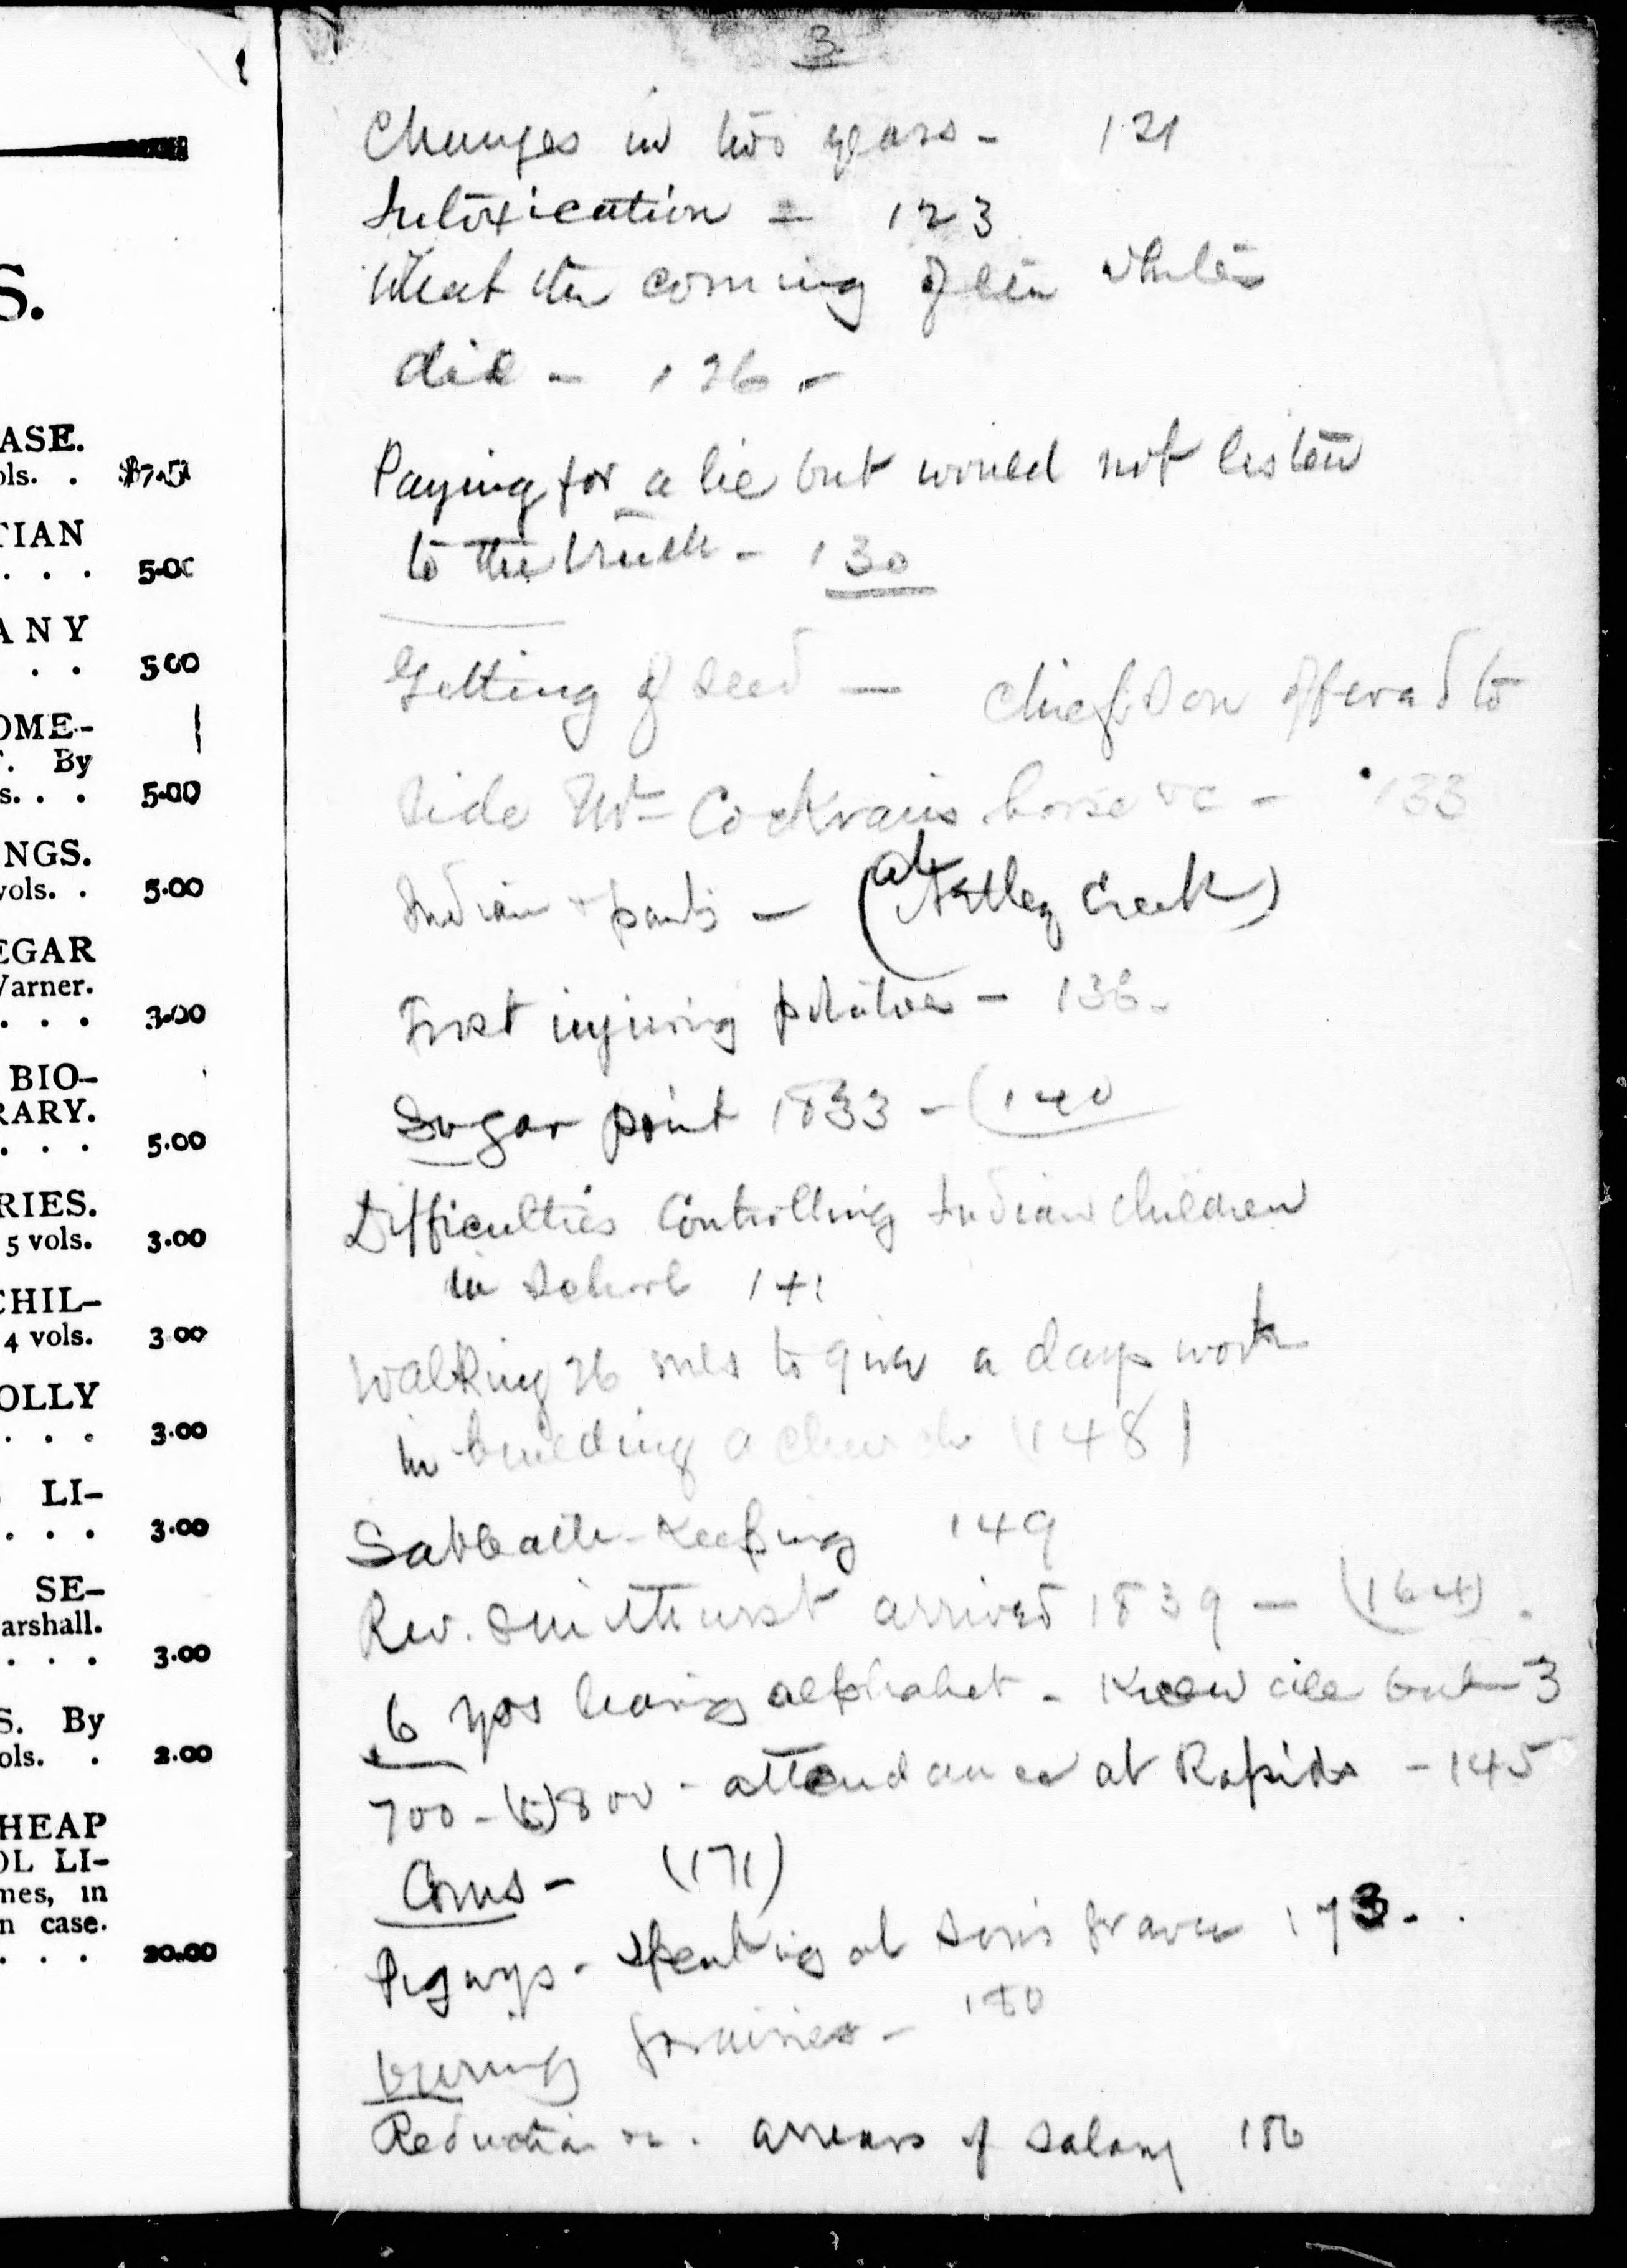 S.
ASE.
ols. . $7.5
TIAN
. . . 5.00
ANY
. . 5 00
OME-
. By
s. . . 5.00
NGS.
vols. . 5.00
EGAR
Varner.
. . . 3.00
BIO-
RARY.
. . . 5.00
RIES.
5 vols. 3.00
CHIL-
4 vols. 3 00
OLLY
. . . 3.00
LI-
. . . 3.00
SE-
arshall.
. . . 3.00
S. By
ols. . 2.00
HEAP
OL LI-
mes, in
n case.
. . . 20.00
3
Changes in two years - 121
Intoxication - 123
What the coming of the whites
did - 126 -
Paying for a lie but would not listen
to the truth - 130
Getting of seed — chief's son offered to
ride Mr Cockrans horse &c - 133
Indian & pants — (at Netley Creek)
Frost injuring potatoes - 136 -
Sugar point 1833 - (140
Difficulties Controlling Indian children
in School 141
Walking 26 mls to give a days work
in building a church (148)
Sabbath-Keeping 149
Rev. Smithurst arrived 1839 — (164) .
6 yrs learning alphabet - Knew all but 3
700 - (to) 800 - attendance at Rapids - 145
Cows - (171)
Pigwys - speaking at son's grave 173 .
during 180
Reduction &c. arrears of salary 186